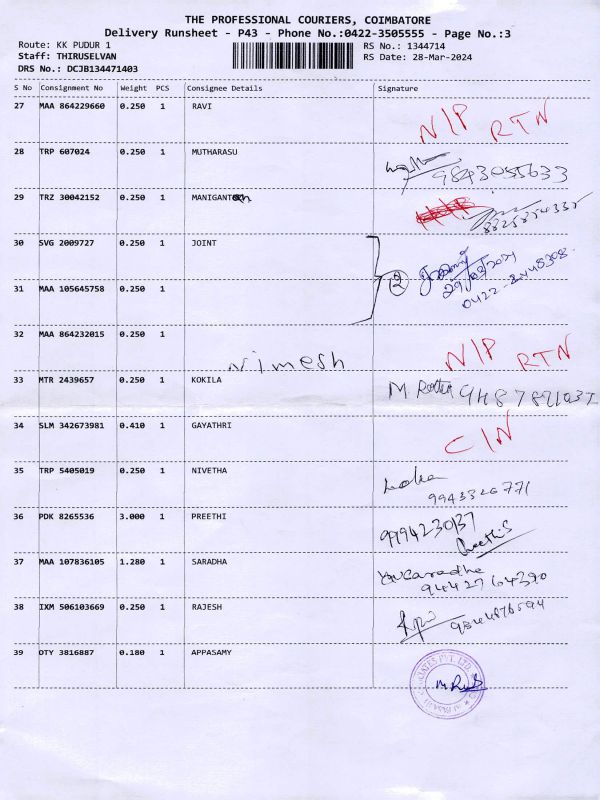 THE PROFESSIONAL COURIERS, COIMBATORE
Delivery Runsheet - P43 - Phone No.:0422-3505555 - Page No.:3
Route: KK PUDUR 1 RS No.: 1344714
Staff: THIRUSELVAN RS Date: 28-Mar-2024
DRS No.: DCJB134471403
S No Consignment No Weight PCS Consignee Details Signature
27 MAA 864229660 0.250 1 RAVI N/P RTN
28 TRP 607024 0.250 1 MUTHARASU 9843055633
29 TRZ 30042152 0.250 1 MANIGANT
30 SVG 2009727 0.250 1 JOINT
31 MAA 105645758 0.250 1 2
32 MAA 864232015 0.250 1 Nimesh N/P RTN
33 MTR 2439657 0.250 1 KOKILA M.
34 SLM 342673981 0.410 1 GAYATHRI C/N
35 TRP 5405019 0.250 1 NIVETHA 9943326771
36 PDK 8265536 3.000 1 PREETHI 9994230137
Preethi S
37 MAA 107836105 1.280 1 SARADHA
9442764390
38 IXM 506103669 0.250 1 RAJESH
39 DTY 3816887 0.180 1 APPASAMY